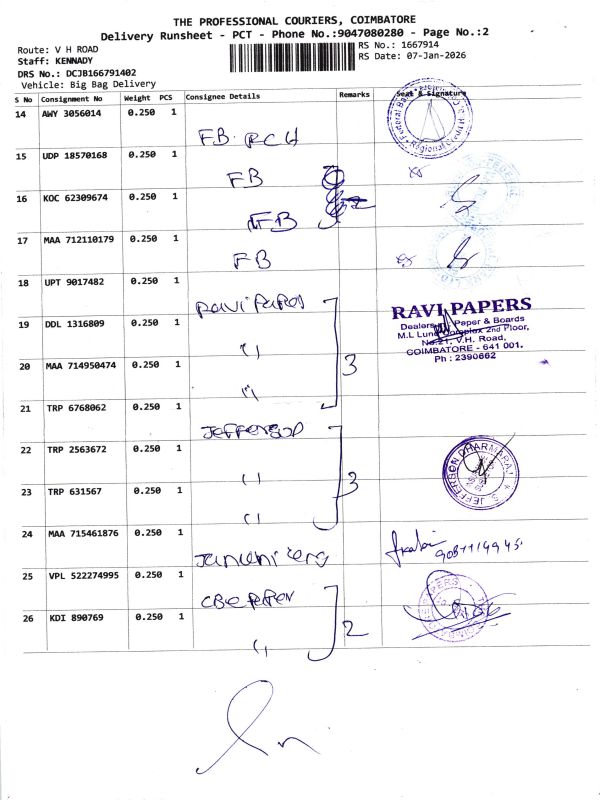 THE PROFESSIONAL COURIERS, COIMBATORE
Delivery Runsheet - PCT - Phone No.:9047080280 - Page No.:2
Route: V H ROAD
Staff: KENNADY
DRS No.: DCJB166791402
Vehicle: Big Bag Delivery
RS No.: 1667914
RS Date: 07-Jan-2026
S No Consignment No Weight PCS Consignee Details Remarks Seal & Signature
14 AWY 3056014 0.250 1 FB RCH
Federal Ba
Regional
15 UDP 18570168 0.250 1 FB
16 KOC 62309674 0.250 1 FB
17 MAA 712110179 0.250 1 FB
18 UPT 9017482 0.250 1 Ravi Papers
19 DDL 1316809 0.250 1 "
20 MAA 714950474 0.250 1 " 3
RAVI PAPERS
Dealers of Paper & Boards
M.L Luna Complex 2nd Floor,
No.21, V.H. Road,
COIMBATORE - 641 001.
Ph : 2390662
21 TRP 6768062 0.250 1 Jefferson
22 TRP 2563672 0.250 1 "
23 TRP 631567 0.250 1 " 3
S. JEFFERSON DHARMARAJ
24 MAA 715461876 0.250 1
25 VPL 522274995 0.250 1 CBE Paper
26 KDI 890769 0.250 1 " 2